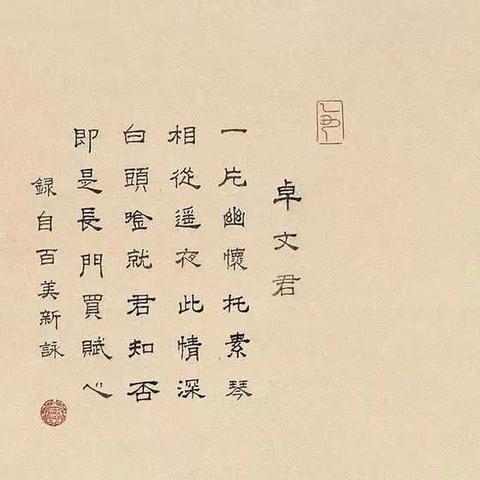 卓文君
一片幽懷托素琴
相從遥夜此情深
白頭唫就君知否
即是長門買賦心
録自百美新詠